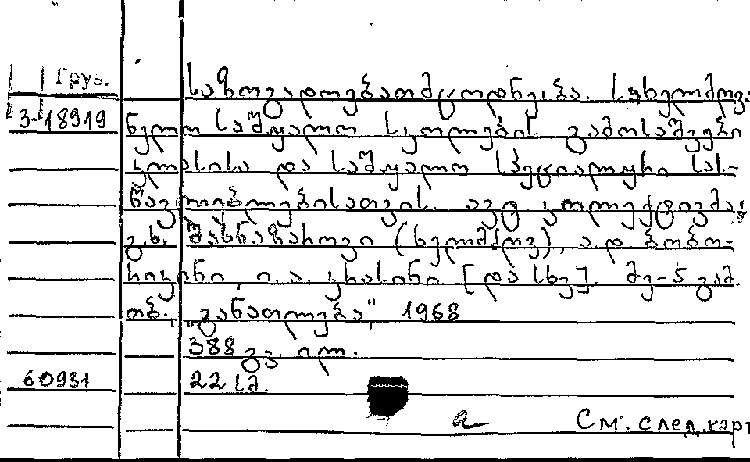 Груз.
საზოგადოებათმცოდნეობა. სახელმძღვ.
3-18919
ნელო საშუალო სკოლების გამოსაშვები
კლასისა და საშუალო სპეციალური სას-
წავლებლებისათვის. ავტ. კოლექტივმა:
გ.ხ. შახნაზაროვი (ხელმძღვ.), ა.დ. ბობო-
რიკინი, ი.ა. კრასინი [და სხვ.]. მე-5 გამ.
თბ. „განათლება", 1968
388 გვ. ილ.
60931
22 სმ.
a См. след. карт